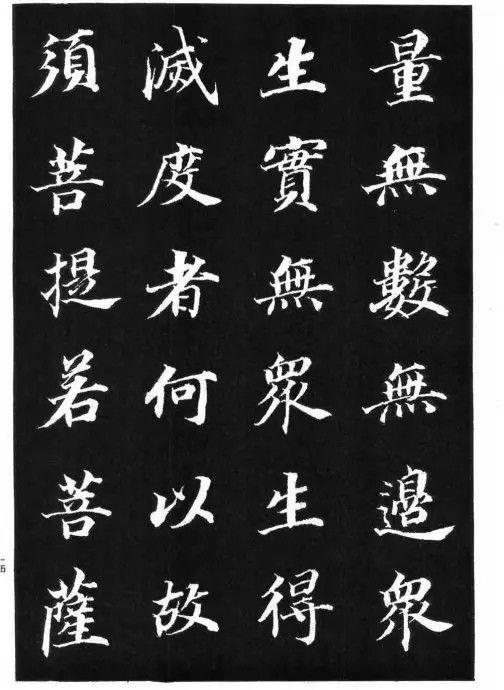 量無數無邊衆
生實無衆生得
滅度者何以故
須菩提若菩薩
一五